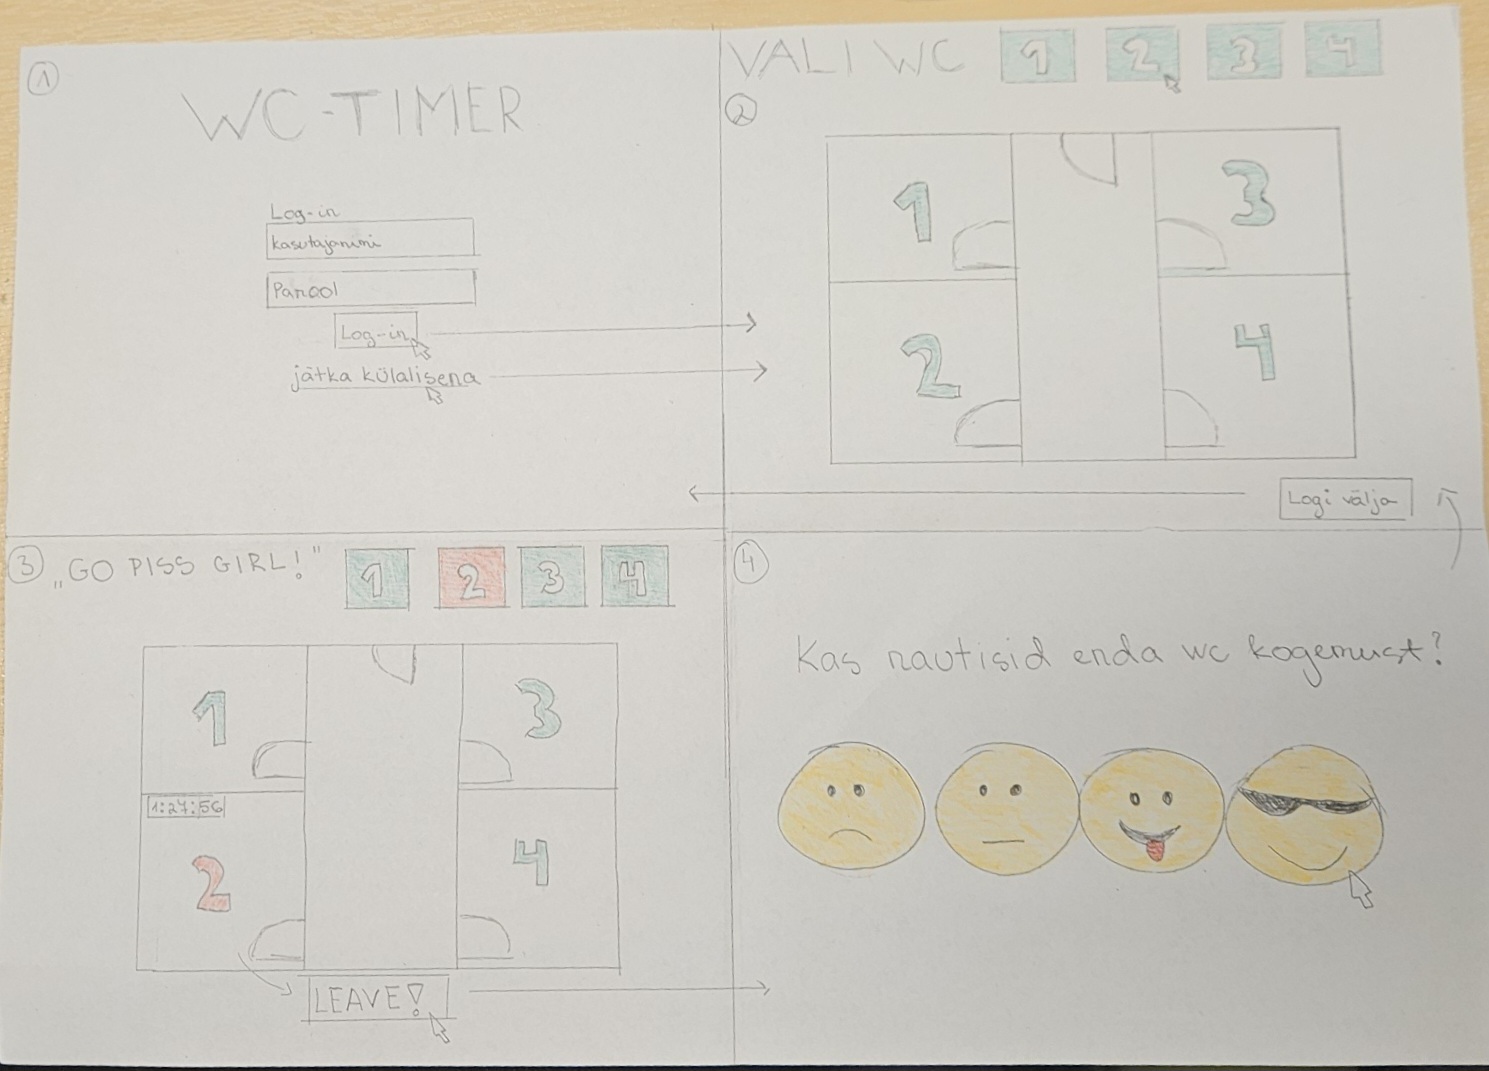 1
WC-TIMER
Log-in
kasutajanimi
Parool
Log-in
jätka külalisena
VALI WC 1 2 3 4
2
1 3
2 4
Logi välja
3 „GO PISS GIRL!" 1 2 3 4
1 3
1:27:56
2 4
LEAVE!
4
Kas nautisid enda wc kogemust?